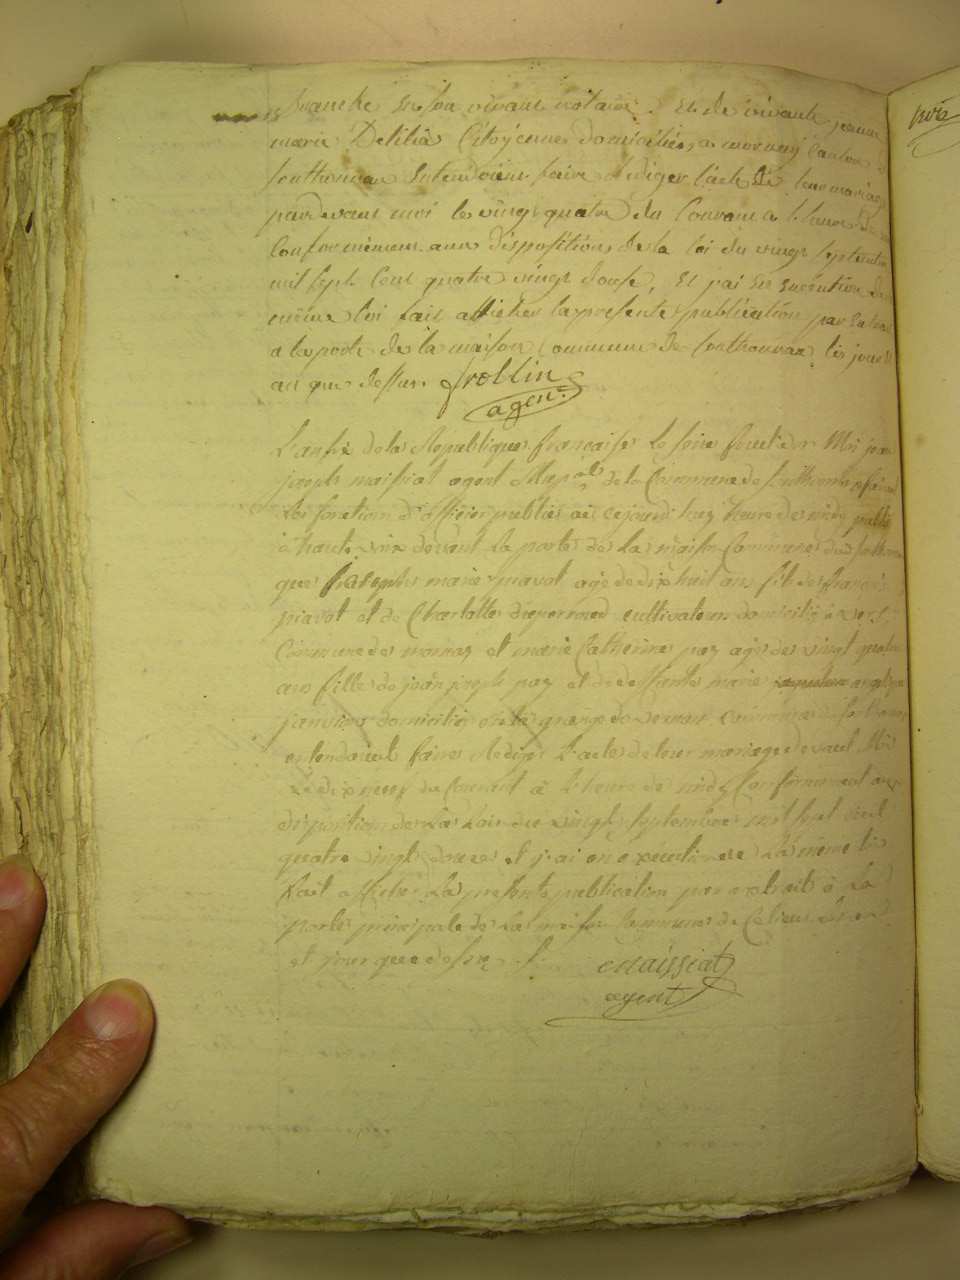 franche en son vivant notaire. Et de vivante jeanne
marie Delilia Citoyenne domiciliés a mornay Canton de
Sonthonnax entendoient faire rediger l'acte de leur mariage
pardevant moi le vingt quatre du Courant a l'heure de
Conformément aux dispositions de la loi du vingt septembre
mil sept Cent quatre vingt douse, Et j'ai en execution de
même loi fait afficher la presente publication par extrait
a la porte de la maison Commune de Sonthonnax les jour et
an que dessus. frollin
agent
L'an six de la Republique française le seize Moi jean
joseph maissiat agent Mupal de la Commune de Sonthonnax faisant
les fonction d'officier public ai cejourd'huy heure de midy publié
à haute voix devant la porte de la maison Commune dud. Sonthonnax
que joseph marie piavot age de dix huit ans fils de françois
piavot et de Charlotte cultivateur domicilié à vers
Commune de mornay et marie Catherine pay age de vingt quatre
ans fille de jean joseph pay et de deffunte marie angelique
janvier domicilié à la grange de Commune de Sonthonnax
entendoient faire Rediger L'acte de leur mariage devant Moi
Le dix neuf du Courant à L'heure de midy Conformement aux
disposition de La Loi du vingt septembre mil sept Cent
quatre vingt douze et j'ai en execution de La même loi
fait afficher La presente publication par extrait à La
porte principale de La maison Commune de Ce lieu Les an
et jour que dessus
maissiat
agent